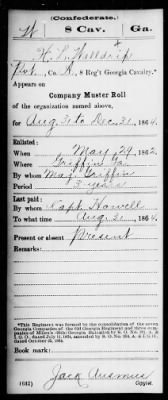 (Confederate.)
W 8 Cav. Ga.
Pvt., Co. A, 8 Reg't Georgia Cavalry.*
Appears on
Company Muster Roll
of the organization named above,
for Aug 31 to Dec. 31, 1864.
Enlisted:
When May 29, 1862
Where Griffin Ga
By whom Maj Griffin
Period 3 years
Last paid:
By whom Capt. Howell
To what time Aug 31, 1864.
Present or absent Present
Remarks:
*This Regiment was formed by the consolidation of the seven
Georgia Companies of the
Book mark:
(642) Jack Ausmus
Copyist.